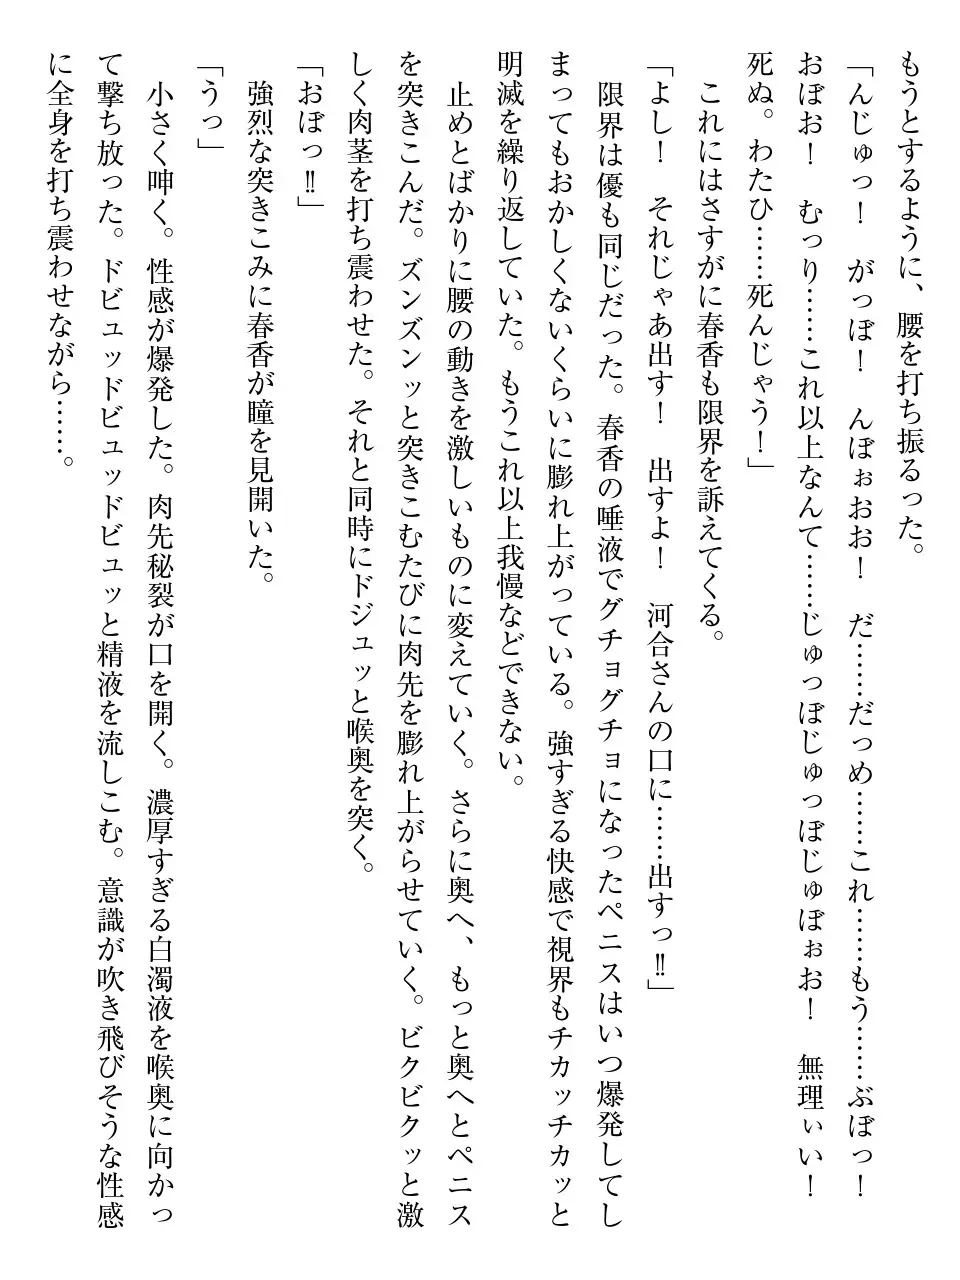 もうとするように、腰を打ち振るった。
「んじゅっ！　がっぼ！　んぼぉおお！　だ……だっめ……これ……もう……ぶぼっ！
おぼお！　むっり……これ以上なんて……じゅっぼじゅっぼじゅぼぉお！　無理ぃい！
死ぬ。わたひ……死んじゃう！」
　これにはさすがに春香も限界を訴えてくる。
「よし！　それじゃあ出す！　出すよ！　河合さんの口に……出すっ‼」
　限界は優も同じだった。春香の唾液でグチョグチョになったペニスはいつ爆発してし
まってもおかしくないくらいに膨れ上がっている。強すぎる快感で視界もチカッチカッと
明滅を繰り返していた。もうこれ以上我慢などできない。
　止めとばかりに腰の動きを激しいものに変えていく。さらに奥へ、もっと奥へとペニス
を突きこんだ。ズンズンッと突きこむたびに肉先を膨れ上がらせていく。ビクビクッと激
しく肉茎を打ち震わせた。それと同時にドジュッと喉奥を突く。
「おぼっ‼」
　強烈な突きこみに春香が瞳を見開いた。
「うっ」
　小さく呻く。性感が爆発した。肉先秘裂が口を開く。濃厚すぎる白濁液を喉奥に向かっ
て撃ち放った。ドビュッドビュッドビュッと精液を流しこむ。意識が吹き飛びそうな性感
に全身を打ち震わせながら……。